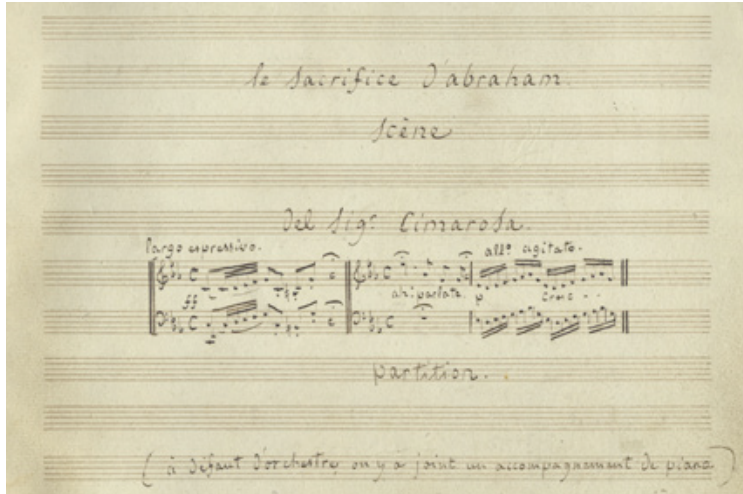 le Sacrifice d'abraham.
Scène
Del Sigr Cimarosa.
largo espressivo.
allo agitato.
ff
ah! parlate. p cresc - -
partition.
(à défaut d'orchestre, on y a joint un accompagnement de piano)